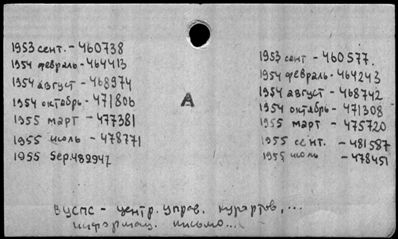 1953 сент. - 460738
1954 февраль - 464413
1954 август - 468974
1954 октябрь - 471806
1955 март - 477381
1955 июль - 478771
1955 sep. 482947
А
1953 сент - 460577.
1954 февраль - 464243
1954 август - 468742
1954 октябрь - 471308
1955 март - 475720
1955 сент. - 481587
1955 июль - 478451
ВЦСПС - центр. управ. курортов, ...
информац. письмо...